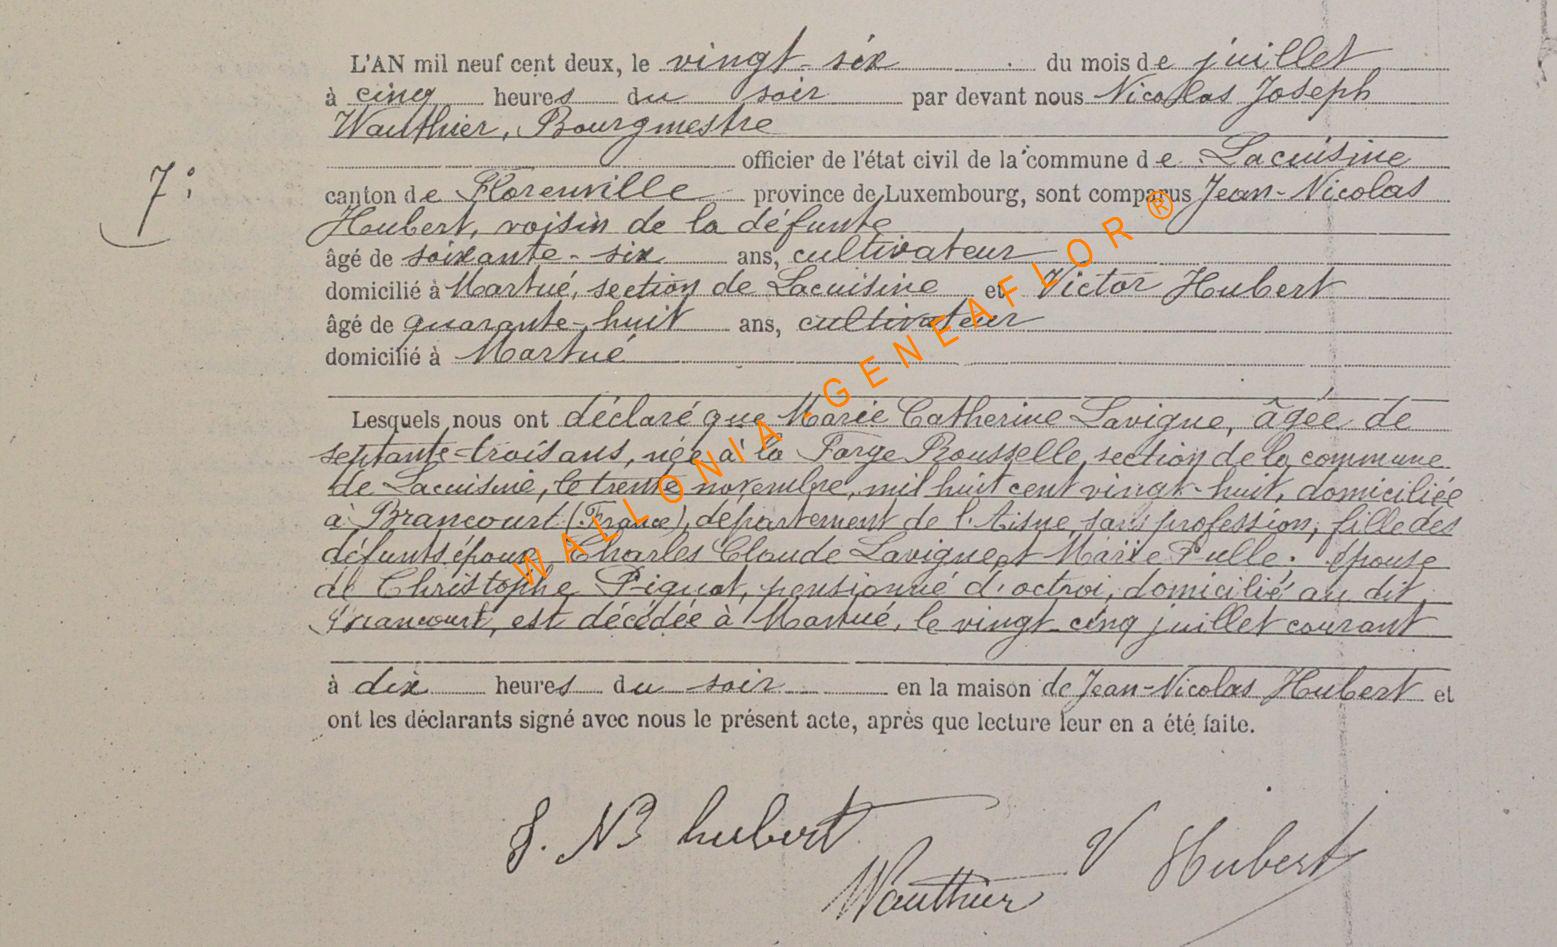 L'AN mil neuf cent deux, le vingt-six du mois de juillet
à cinq heures du soir par devant nous Nicolas Joseph
Wauthier, Bourgmestre
officier de l'état civil de la commune de Lacuisine
7°
canton de Florenville province de Luxembourg, sont comparus Jean-Nicolas
Hubert, voisin de la défunte
âgé de soixante-six ans, cultivateur
domicilié à Martué, section de Lacuisine et Victor Hubert
âgé de quarante-huit ans, cultivateur
domicilié à Martué
Lesquels nous ont déclaré que Marie Catherine Lavigne, âgée de
septante-trois ans, née à la Forge Rousselle, section de la commune
de Lacuisine, le trente novembre, mil huit cent vingt-huit, domiciliée
à Brancourt (France), département de l'Aisne, sans profession, fille des
défunts époux Charles Claude Lavigne et Marie Pulle. épouse
de Christophe Piquot, pensionné d'octroi, domicilié au dit
Brancourt, est décédée à Martué, le vingt-cinq juillet courant
à dix heures du soir en la maison de Jean-Nicolas Hubert et
ont les déclarants signé avec nous le présent acte, après que lecture leur en a été faite.
J. N hubert
V Hubert
Wauthier
WALLONIA-GENEAFLOR ®